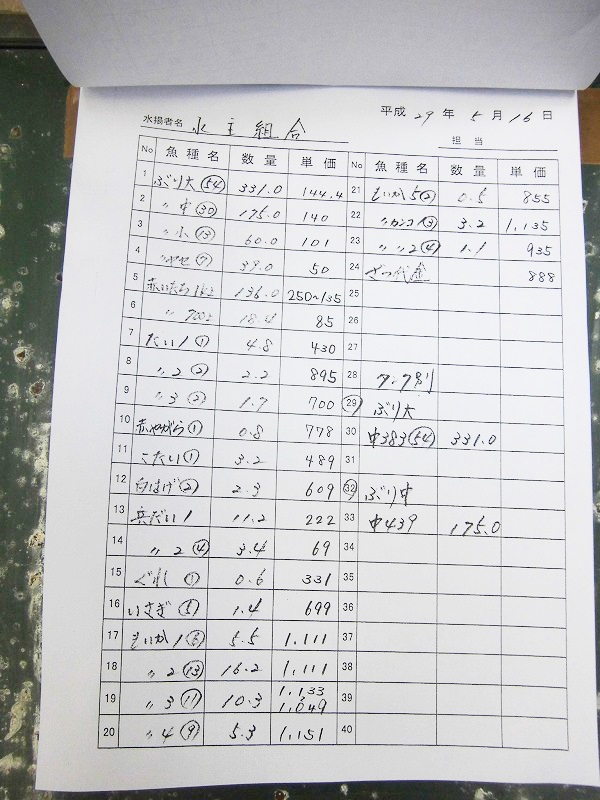 平成 29 年 5 月 16 日
水揚者名 水主組合
担当
No 魚種名 数量 単価 No 魚種名 数量 単価
1 ぶり大(54) 331.0 144.4 21 もいか5(2) 0.5 855
2 〃中(30) 175.0 140 22 〃カンコ(3) 3.2 1,135
3 〃小(13) 60.0 101 23 〃〃2(4) 1.1 935
4 〃ヤセ(7) 39.0 50 24 ざつ代金 888
5 136.0 250~135 25
6 18.4 85 26
7 たい1(1) 4.8 430 27
8 〃2(2) 2.2 895 28 7.7別
9 〃3(2) 1.7 700 (29) ぶり大
10 赤やがら(1) 0.8 778 30 中383(54) 331.0
11 こたい(1) 3.2 489 31
12 白はげ(2) 2.3 609 (32) ぶり中
13 兵だい1 11.2 222 33 中439 175.0
14 〃2(4) 3.4 69 34
15 ぐれ(1) 0.6 331 35
16 いさぎ(5) 1.4 699 36
17 もいか1(6) 5.5 1,111 37
18 〃2(13) 16.2 1,111 38
19 〃3(11) 10.3 1,133 1,049 39
20 〃4(9) 5.3 1,151 40